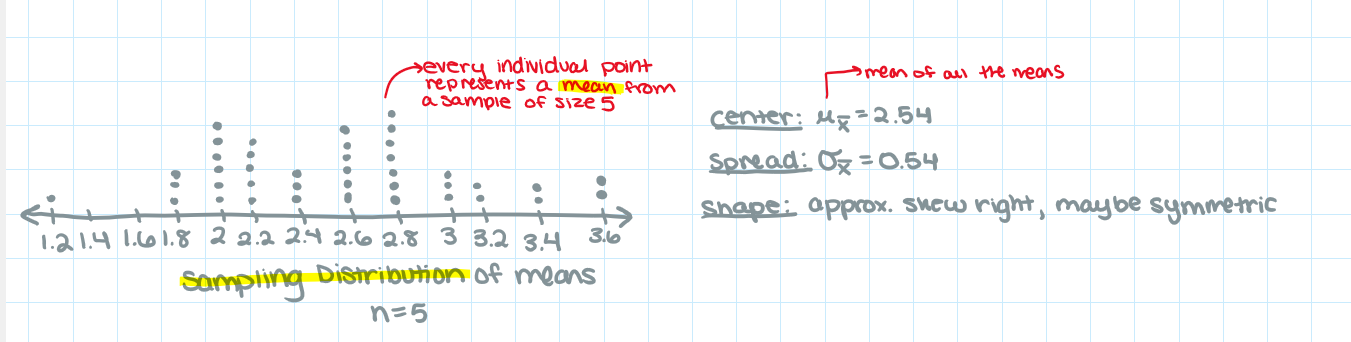 every individual point
represents a mean from
a sample of size 5
1.2 1.4 1.6 1.8 2 2.2 2.4 2.6 2.8 3 3.2 3.4 3.6
Sampling Distribution of means
n=5
mean of all the means
center: μx̄ = 2.54
Spread: σx̄ = 0.54
shape: approx. skew right, maybe symmetric